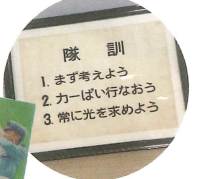 隊訓
1. まず考えよう
2. 力一ぱい行なおう
3. 常に光を求めよう